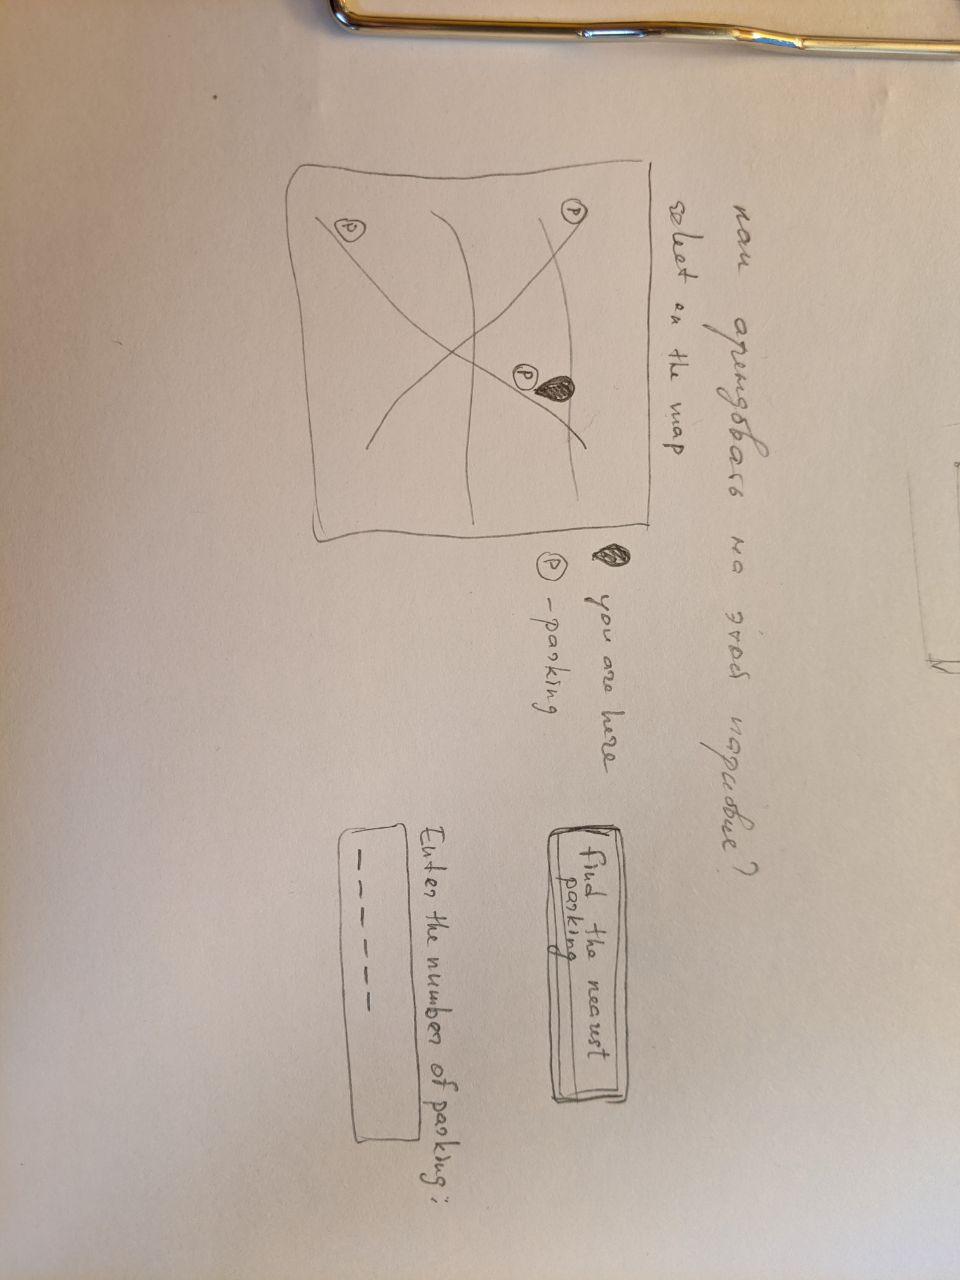 как арендовать на этой парковке?
select on the map
P
P
P
you are here
P - parking
find the nearest
parking
Enter the number of parking:
_ _ _ _ _ _